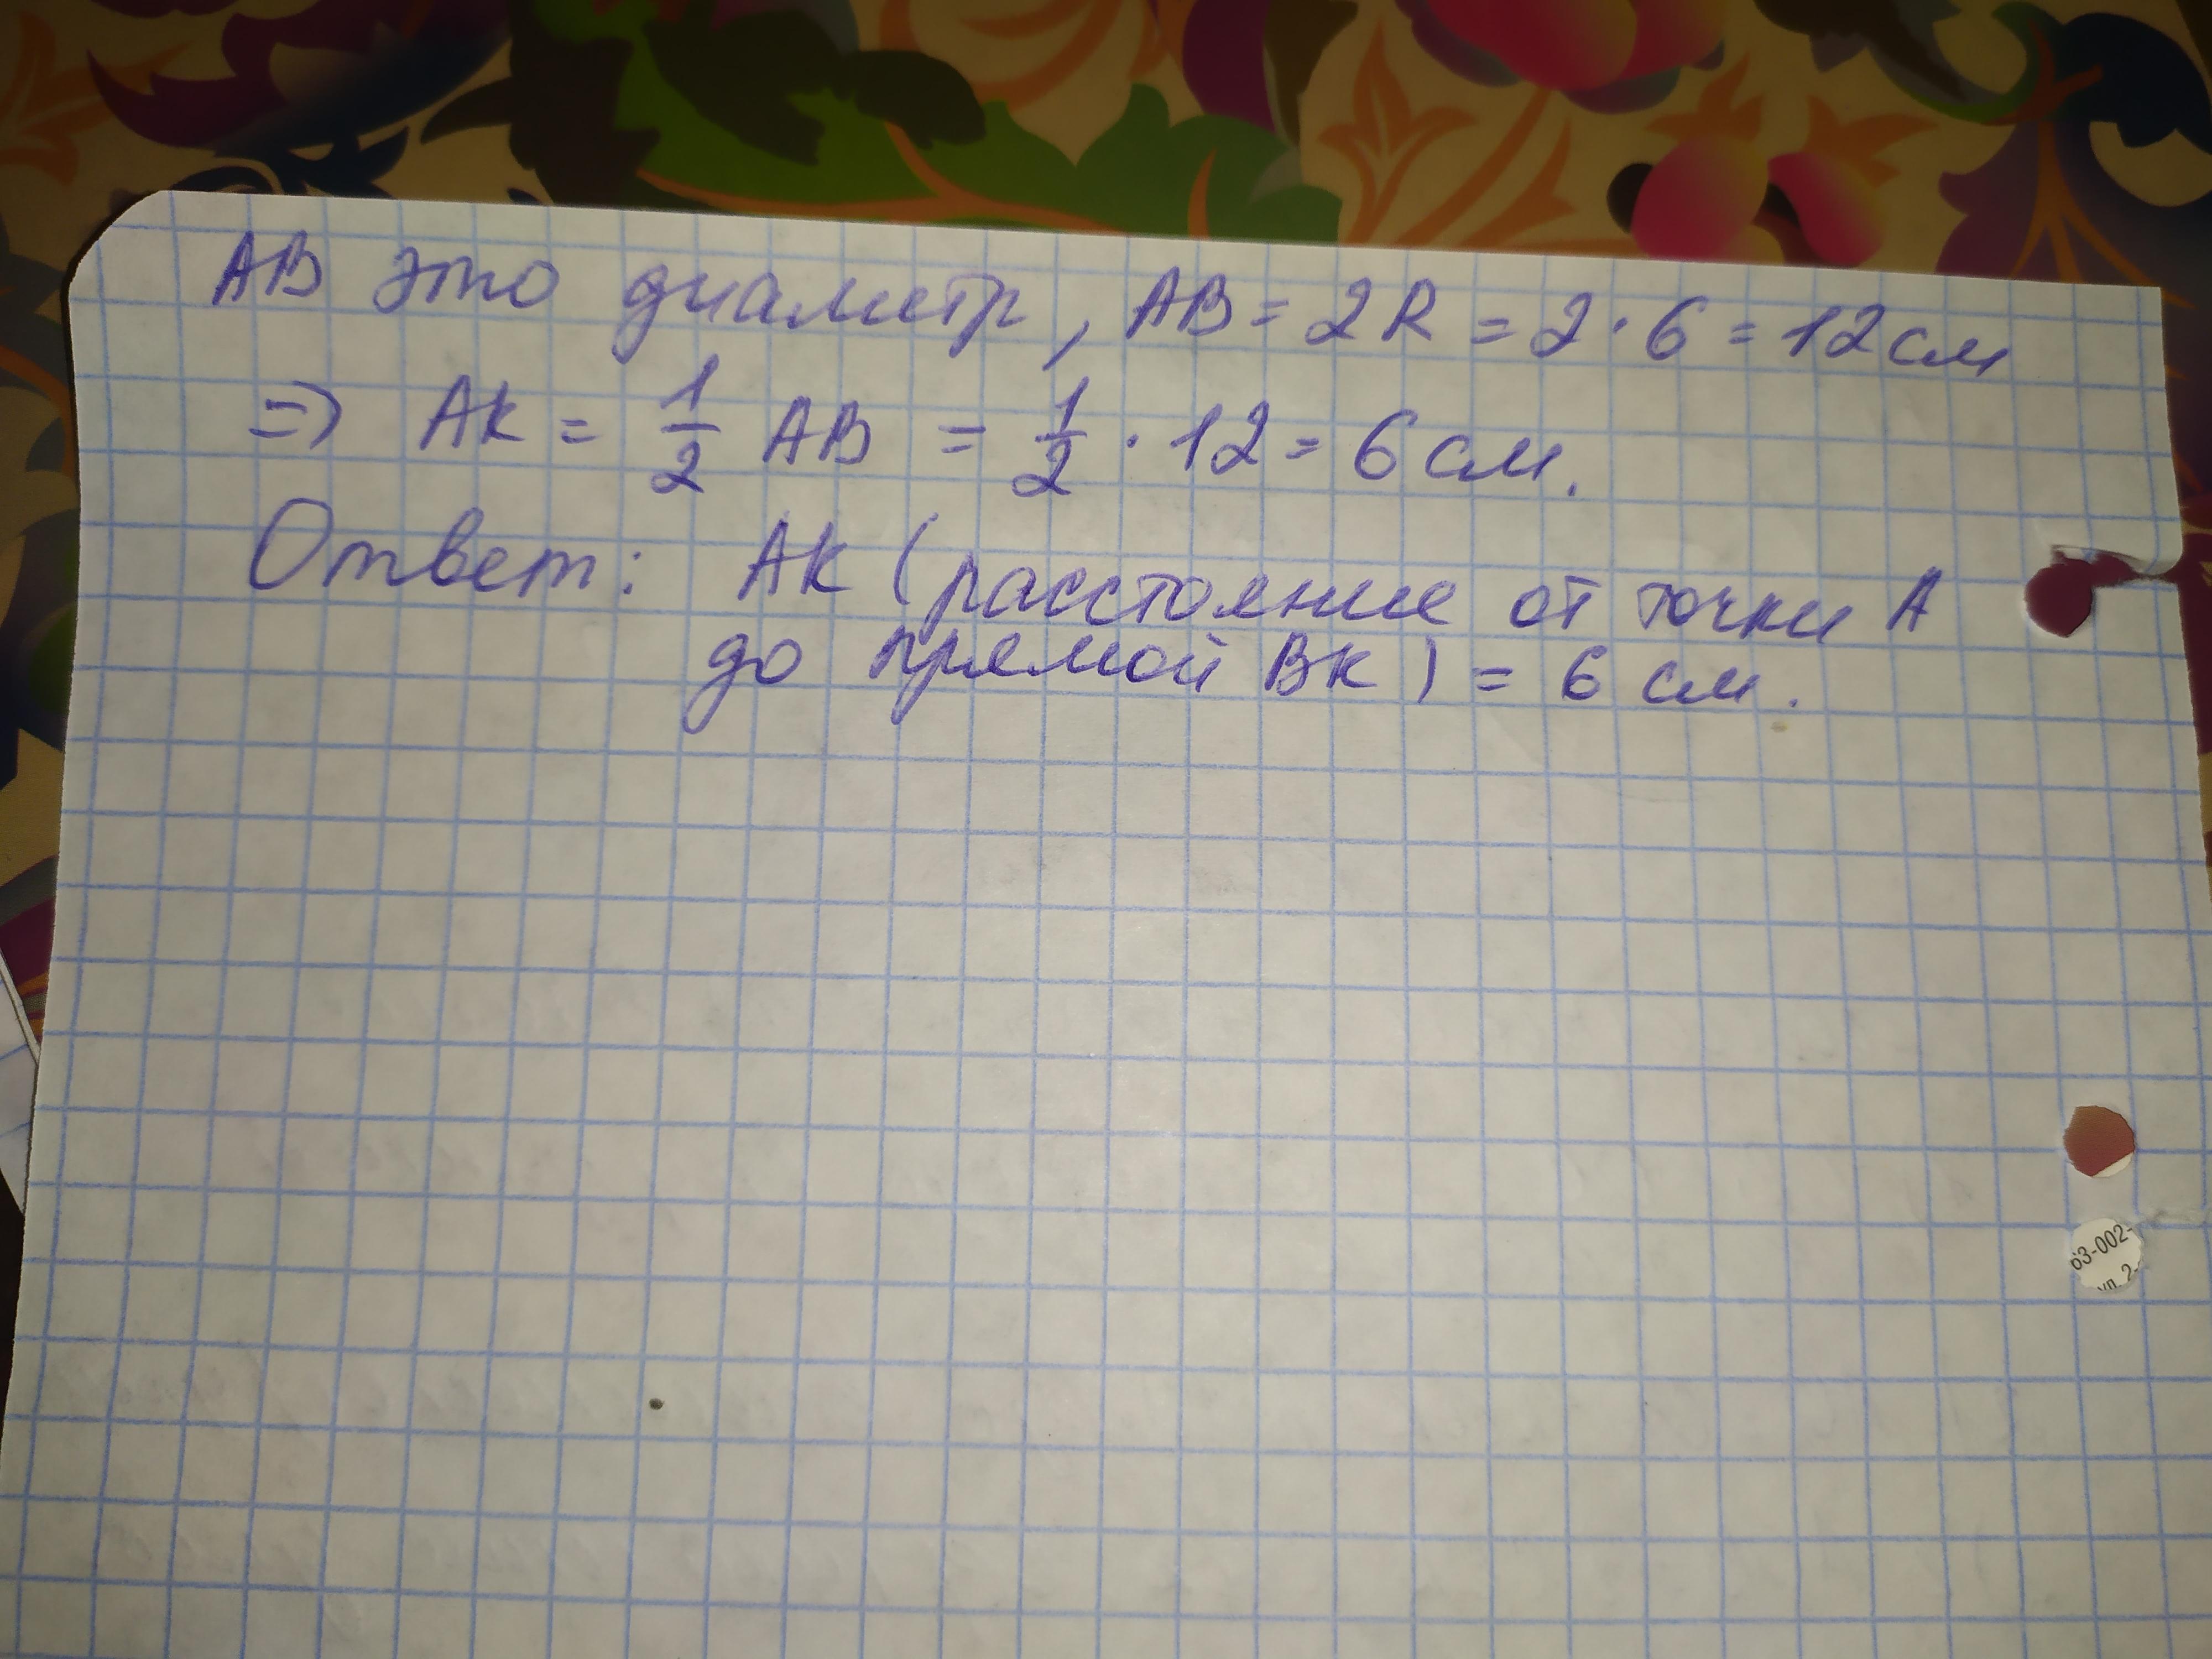 АВ это диаметр, АВ = 2R = 2 · 6 = 12 см
=> АК = 1/2 АВ = 1/2 · 12 = 6 см.
Ответ: АК (расстояние от точки А
до прямой ВК) = 6 см.
63-002-